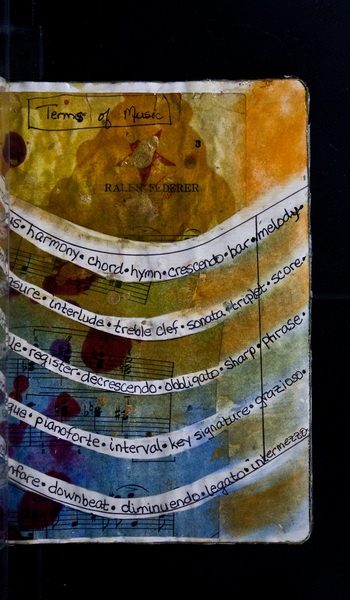 Terms of Music
3
RALEN FEDERER
harmony • chord • hymn • crescendo • bar • melody •
interlude • treble clef • sonata • triplet • score •
register • decrescendo • obbligato • sharp • phrase •
pianoforte • interval • key signature • grazioso •
downbeat • diminuendo • legato • intermezzo